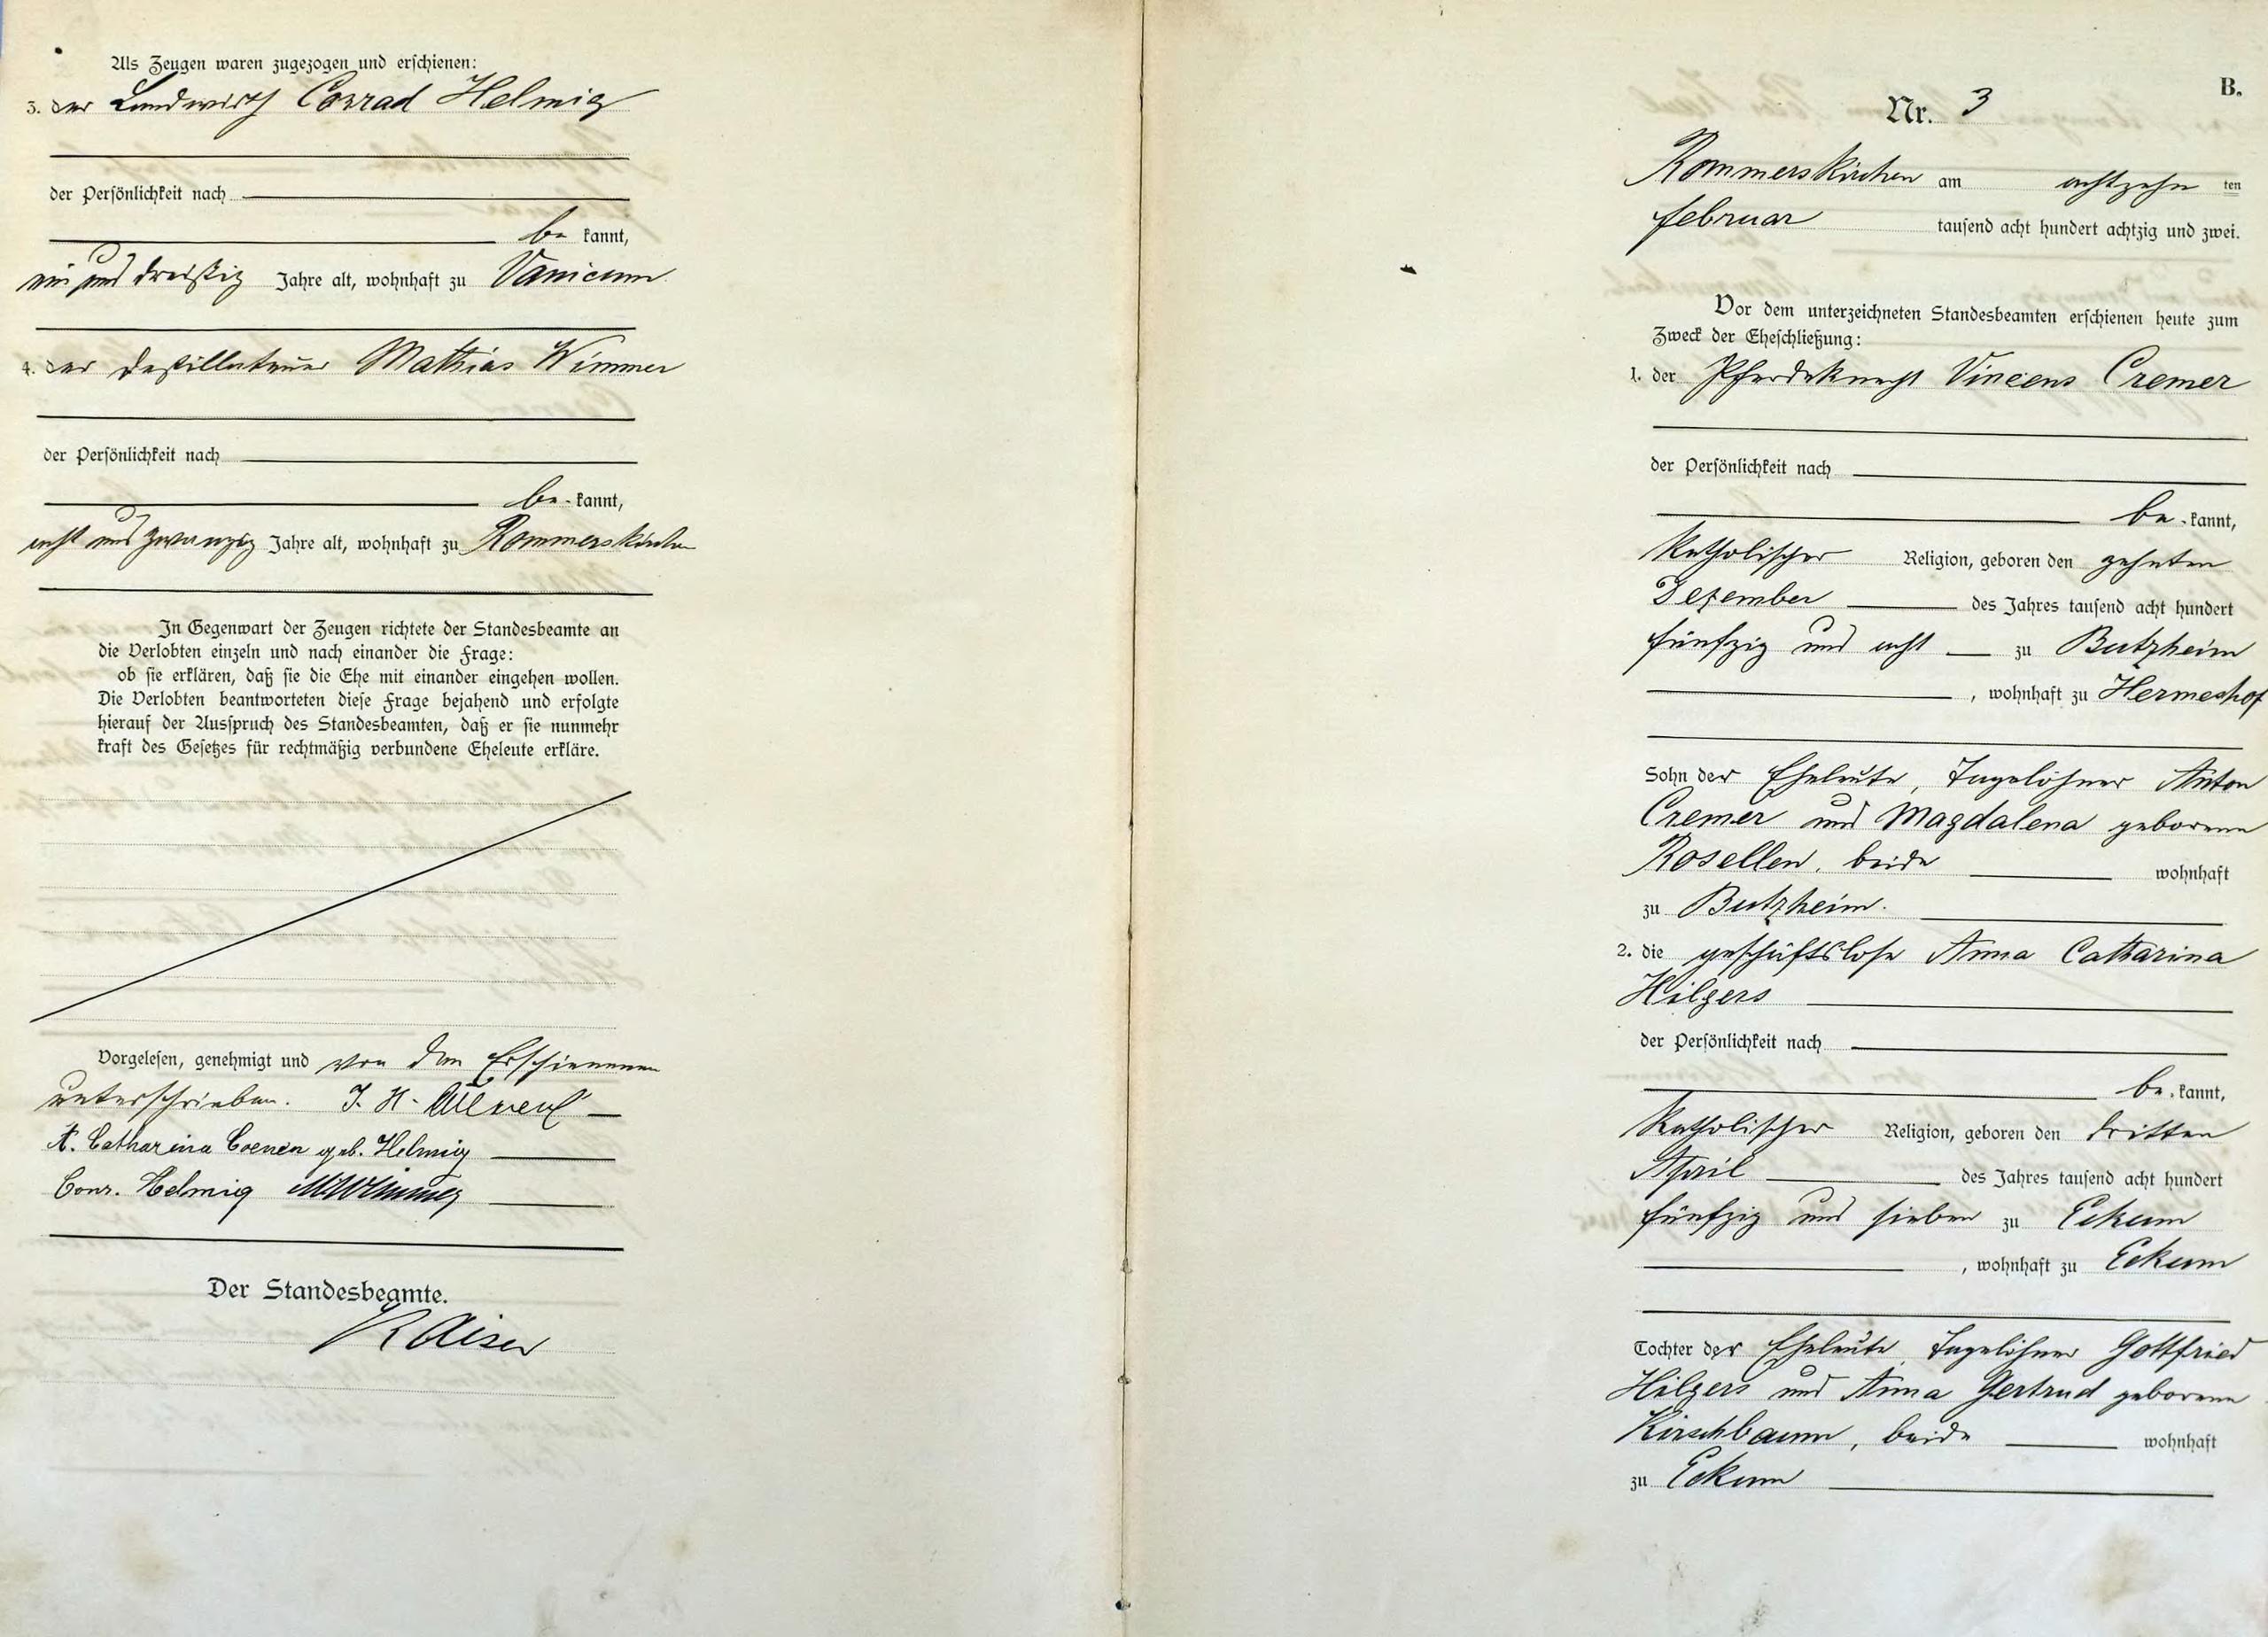 Als Zeugen waren zugezogen und erschienen:
3. der Landwirth Conrad Helmig
der Persönlichkeit nach
be kannt,
ein und dreißig Jahre alt, wohnhaft zu Vanicum
4. der Destillateur Mathias Wimmer
der Persönlichkeit nach
be-kannt,
acht und zwanzig Jahre alt, wohnhaft zu Rommerskirchen
In Gegenwart der Zeugen richtete der Standesbeamte an
die Verlobten einzeln und nach einander die Frage:
ob sie erklären, daß sie die Ehe mit einander eingehen wollen.
Die Verlobten beantworteten diese Frage bejahend und erfolgte
hierauf der Ausspruch des Standesbeamten, daß er sie nunmehr
kraft des Gesetzes für rechtmäßig verbundene Eheleute erkläre.
Vorgelesen, genehmigt und von den Erschienenen
unterschrieben. J. H.
A. Catharina Coenen geb. Helmig
Conr. Helmig MWimmer
Der Standesbeamte.
Kaiser
B.
Nr. 3
Rommerskirchen am achtzehn ten
Februar tausend acht hundert achtzig und zwei.
Vor dem unterzeichneten Standesbeamten erschienen heute zum
Zweck der Eheschließung:
1. der Pferdeknecht Vincens Cremer
der Persönlichkeit nach
be-kannt,
katholischer Religion, geboren den zehnten
Dezember des Jahres tausend acht hundert
fünfzig und acht zu Butzheim
, wohnhaft zu Hermeshof
Sohn der Eheleute, Tagelöhner Anton
Cremer und Magdalena geborene
Rosellen, beide wohnhaft
zu Butzheim.
2. die geschäftslose Anna Catharina
Hilgers
der Persönlichkeit nach
be-kannt,
katholischer Religion, geboren den dritten
April des Jahres tausend acht hundert
fünfzig und sieben zu Eckum
, wohnhaft zu Eckum
Tochter der Eheleute Tagelöhner Gottfried
Hilgers und Anna Gertrud geborene
Kirschbaum, beide wohnhaft
zu Eckum